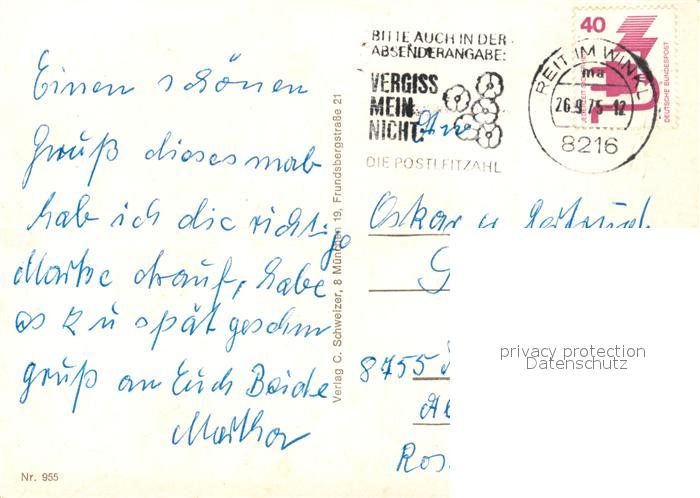 Einen schönen
Gruß diesesmal
hab ich die richtige
Marke drauf, habe
es zu spät gesehn
gruß an Euch Beide
Nr. 955
Verlag C. Schweizer, 8 München 19, Frundsbergstraße 21
BITTE AUCH IN DER
ABSENDERANGABE:
VERGISS
MEIN
NICHT
DIE POSTLEITZAHL
REIT IM WINKL
ma
26.9.75-12
8216
40
JEDERZEIT SICHERHEIT
DEUTSCHE BUNDESPOST
An
Oskar u. Gertrud
8755
privacy protection
Datenschutz